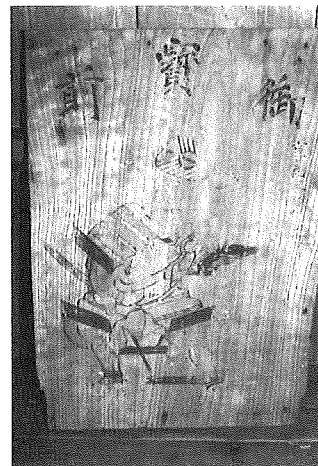 御寶前